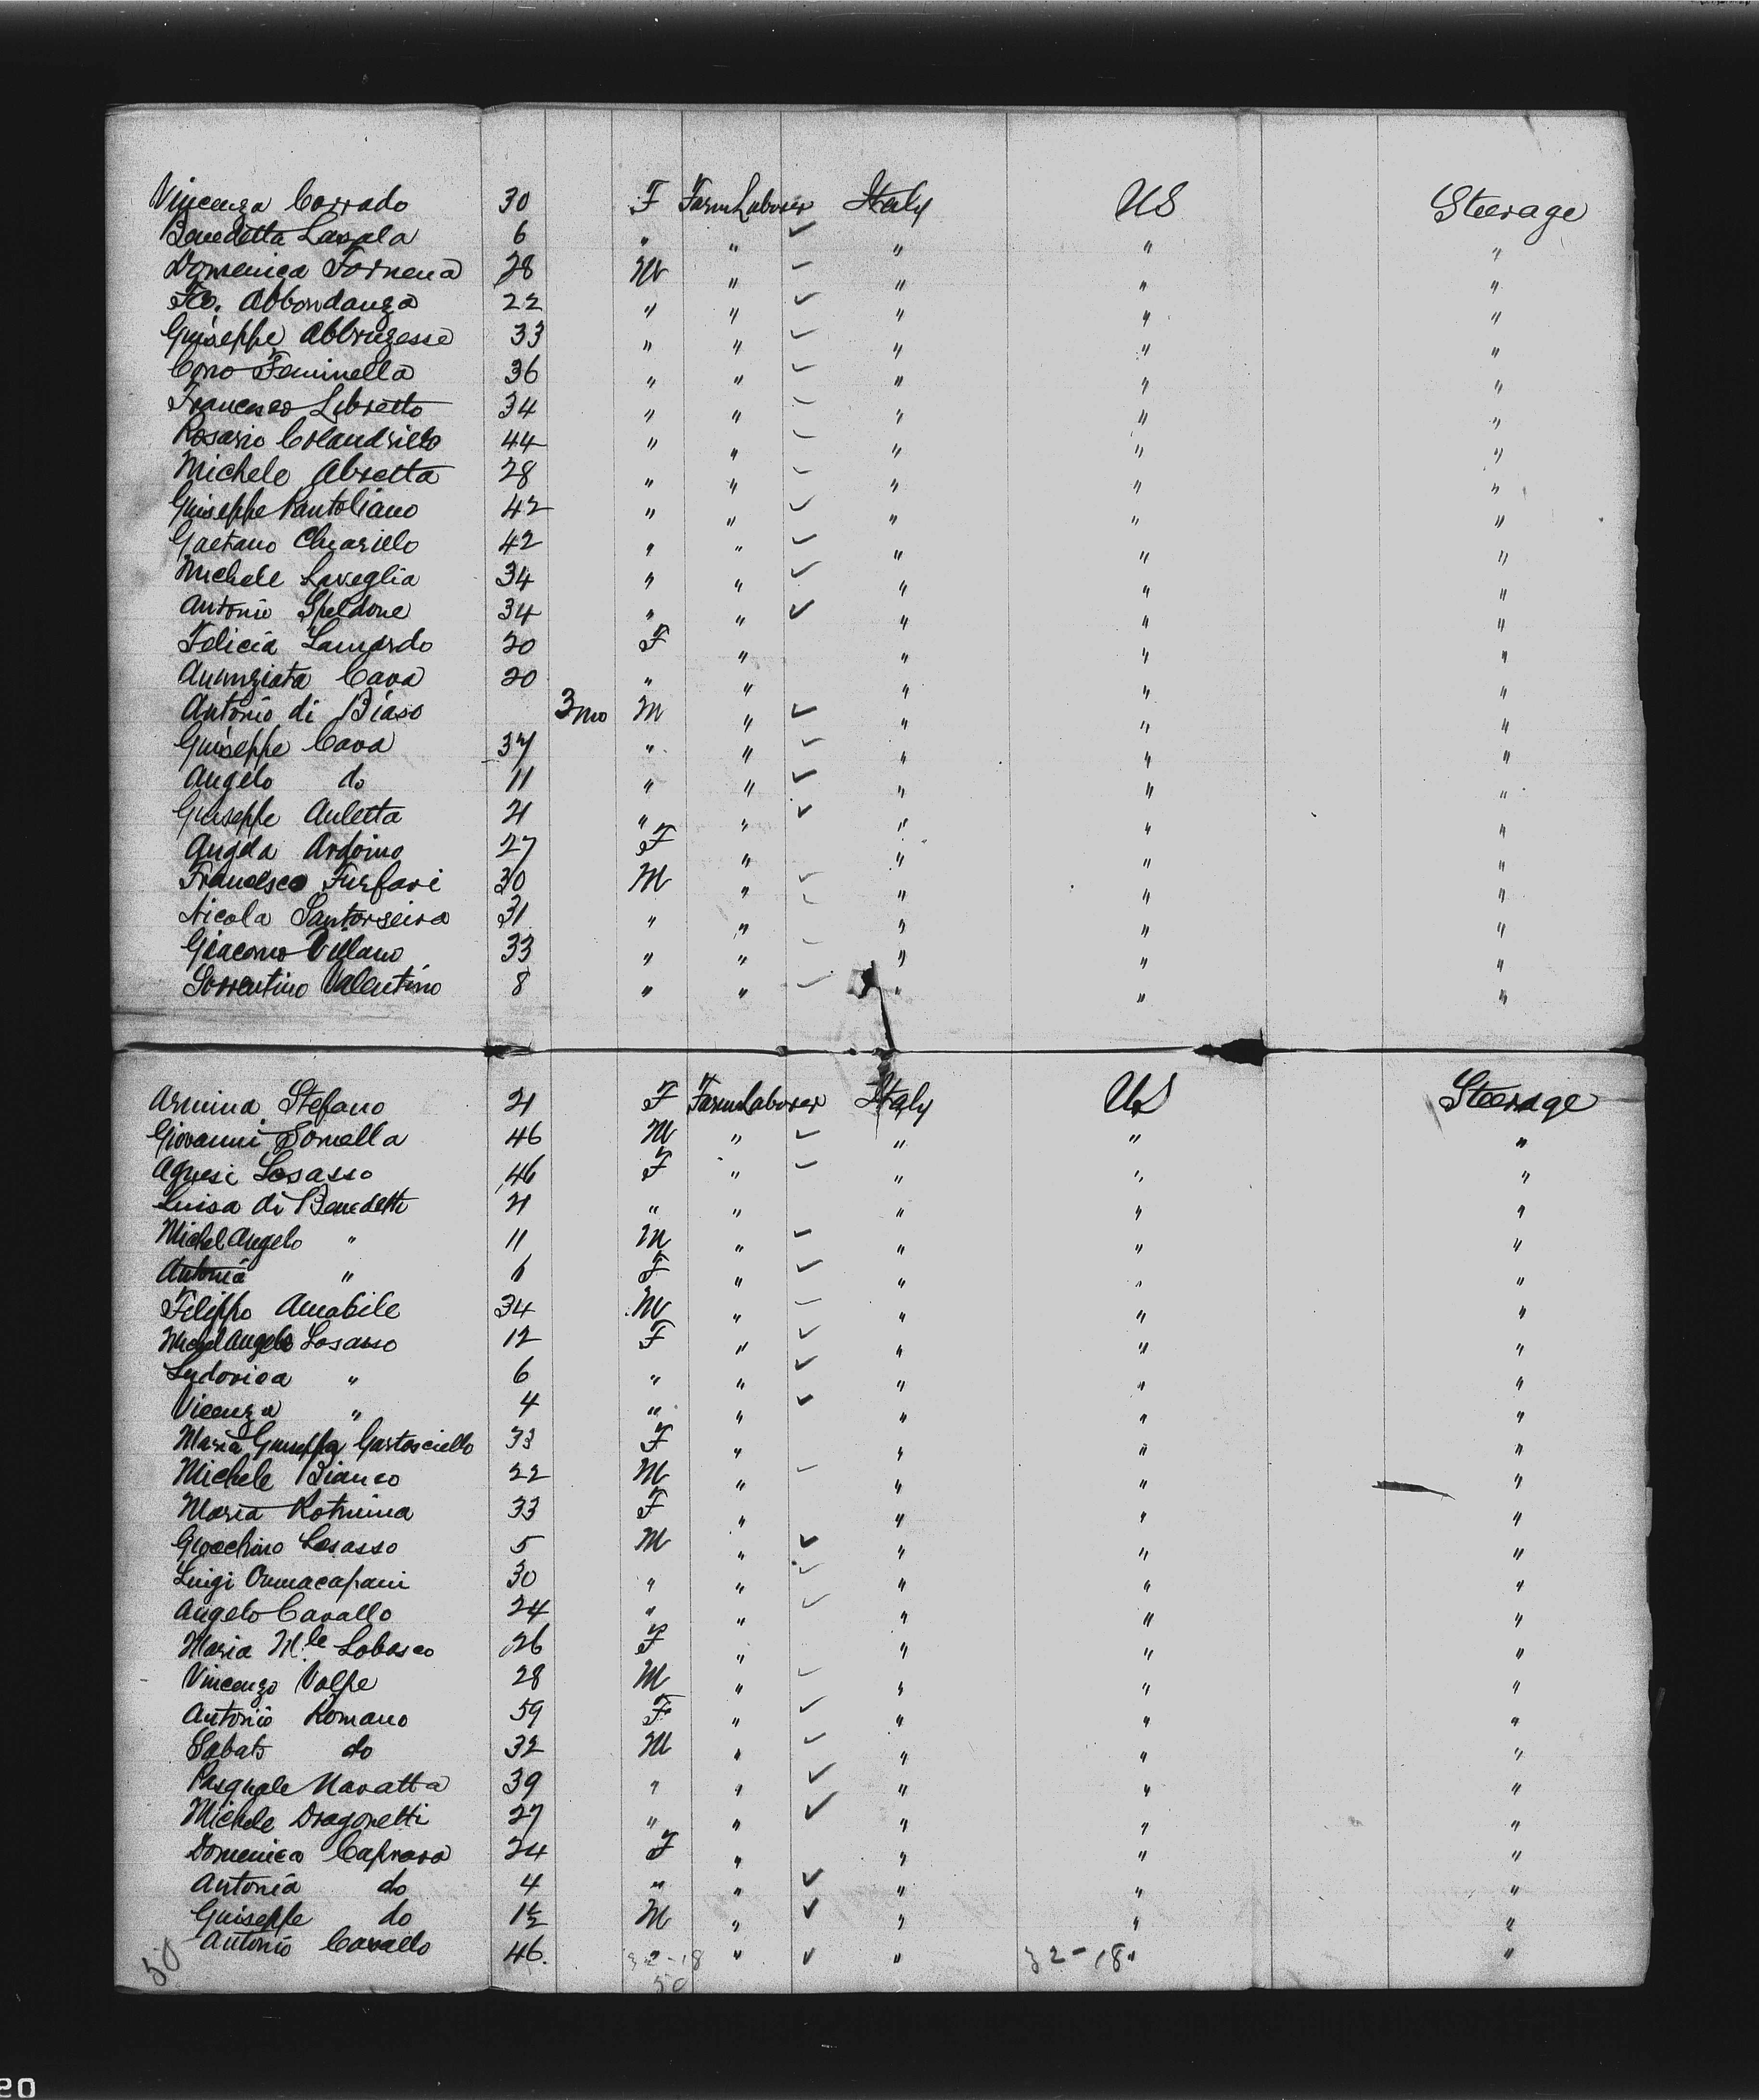 Vincenza Corrado 30 F Farm Laborer Italy US Steerage
Benedetta Lasala 6 " " ✓ " " "
Domenica Fornena 28 M " ✓ " " "
Fco. Abbondanza 22 " " ✓ " " "
Guiseppe Abbruzesse 33 " " ✓ " " "
Cono Feminella 36 " " ✓ " " "
Francesco Libretto 34 " " ✓ " " "
Rosario Colandriello 44 " " ✓ " " "
Michele Abretta 28 " " ✓ " " "
Guiseppe Pantoliano 42 " " ✓ " " "
Gaetano Chiariello 42 " " ✓ " " "
Michele Laveglia 34 " " ✓ " " "
Antonio Speldone 34 " " ✓ " " "
Felicia Lamardo 20 F " " " "
Anunziata Cava 20 " " " " "
Antonio di Biaso 3 mo M " ✓ " " "
Guiseppe Cava 37 " " ✓ " " "
Angelo do 11 " " ✓ " " "
Guiseppe Auletta 21 " " ✓ " " "
Angela Ardoino 27 F " " " "
Francesco Furfari 30 M " ✓ " " "
Nicola Santorseira 31 " " ✓ " " "
Giacomo Villano 33 " " ✓ " " "
Sorrentino Valentino 8 " " ✓ " " "
Armina Stefano 21 F Farm Laborer Italy US Steerage
Giovanni Somella 46 M " ✓ " " "
Agnesi Losasso 46 F " ✓ " " "
Luisa di Benedetti 21 " " " " "
Michel Angelo " 11 M " ✓ " " "
Antonia " 6 F " ✓ " " "
Filippo Amabile 34 M " ✓ " " "
Michel Angelo Losasso 12 F " ✓ " " "
Ludovica " 6 " " ✓ " " "
Vicenza " 4 " " ✓ " " "
Maria Guiseppa Gartosciello 33 F " " " "
Michele Bianco 22 M " ✓ " " "
Maria Rotunna 33 F " " " "
Gioachino Losasso 5 M " ✓ " " "
Luigi 30 " " ✓ " " "
Angelo Cavallo 24 " " ✓ " " "
Maria Mle Lobasco 26 F " " " "
Vincenzo Volpe 28 M " ✓ " " "
Antonio Romano 59 F " ✓ " " "
Sabato do 32 M " ✓ " " "
Pasquale Navatta 39 " " ✓ " " "
Michele Dragonetti 27 " " ✓ " " "
Domenica Caprara 24 F " " " "
Antonia do 4 " " ✓ " " "
Guiseppe do 1½ M " ✓ " " "
Antonio Cavallo 46. 32-18 " ✓ " 32-18 " "
50 50
20